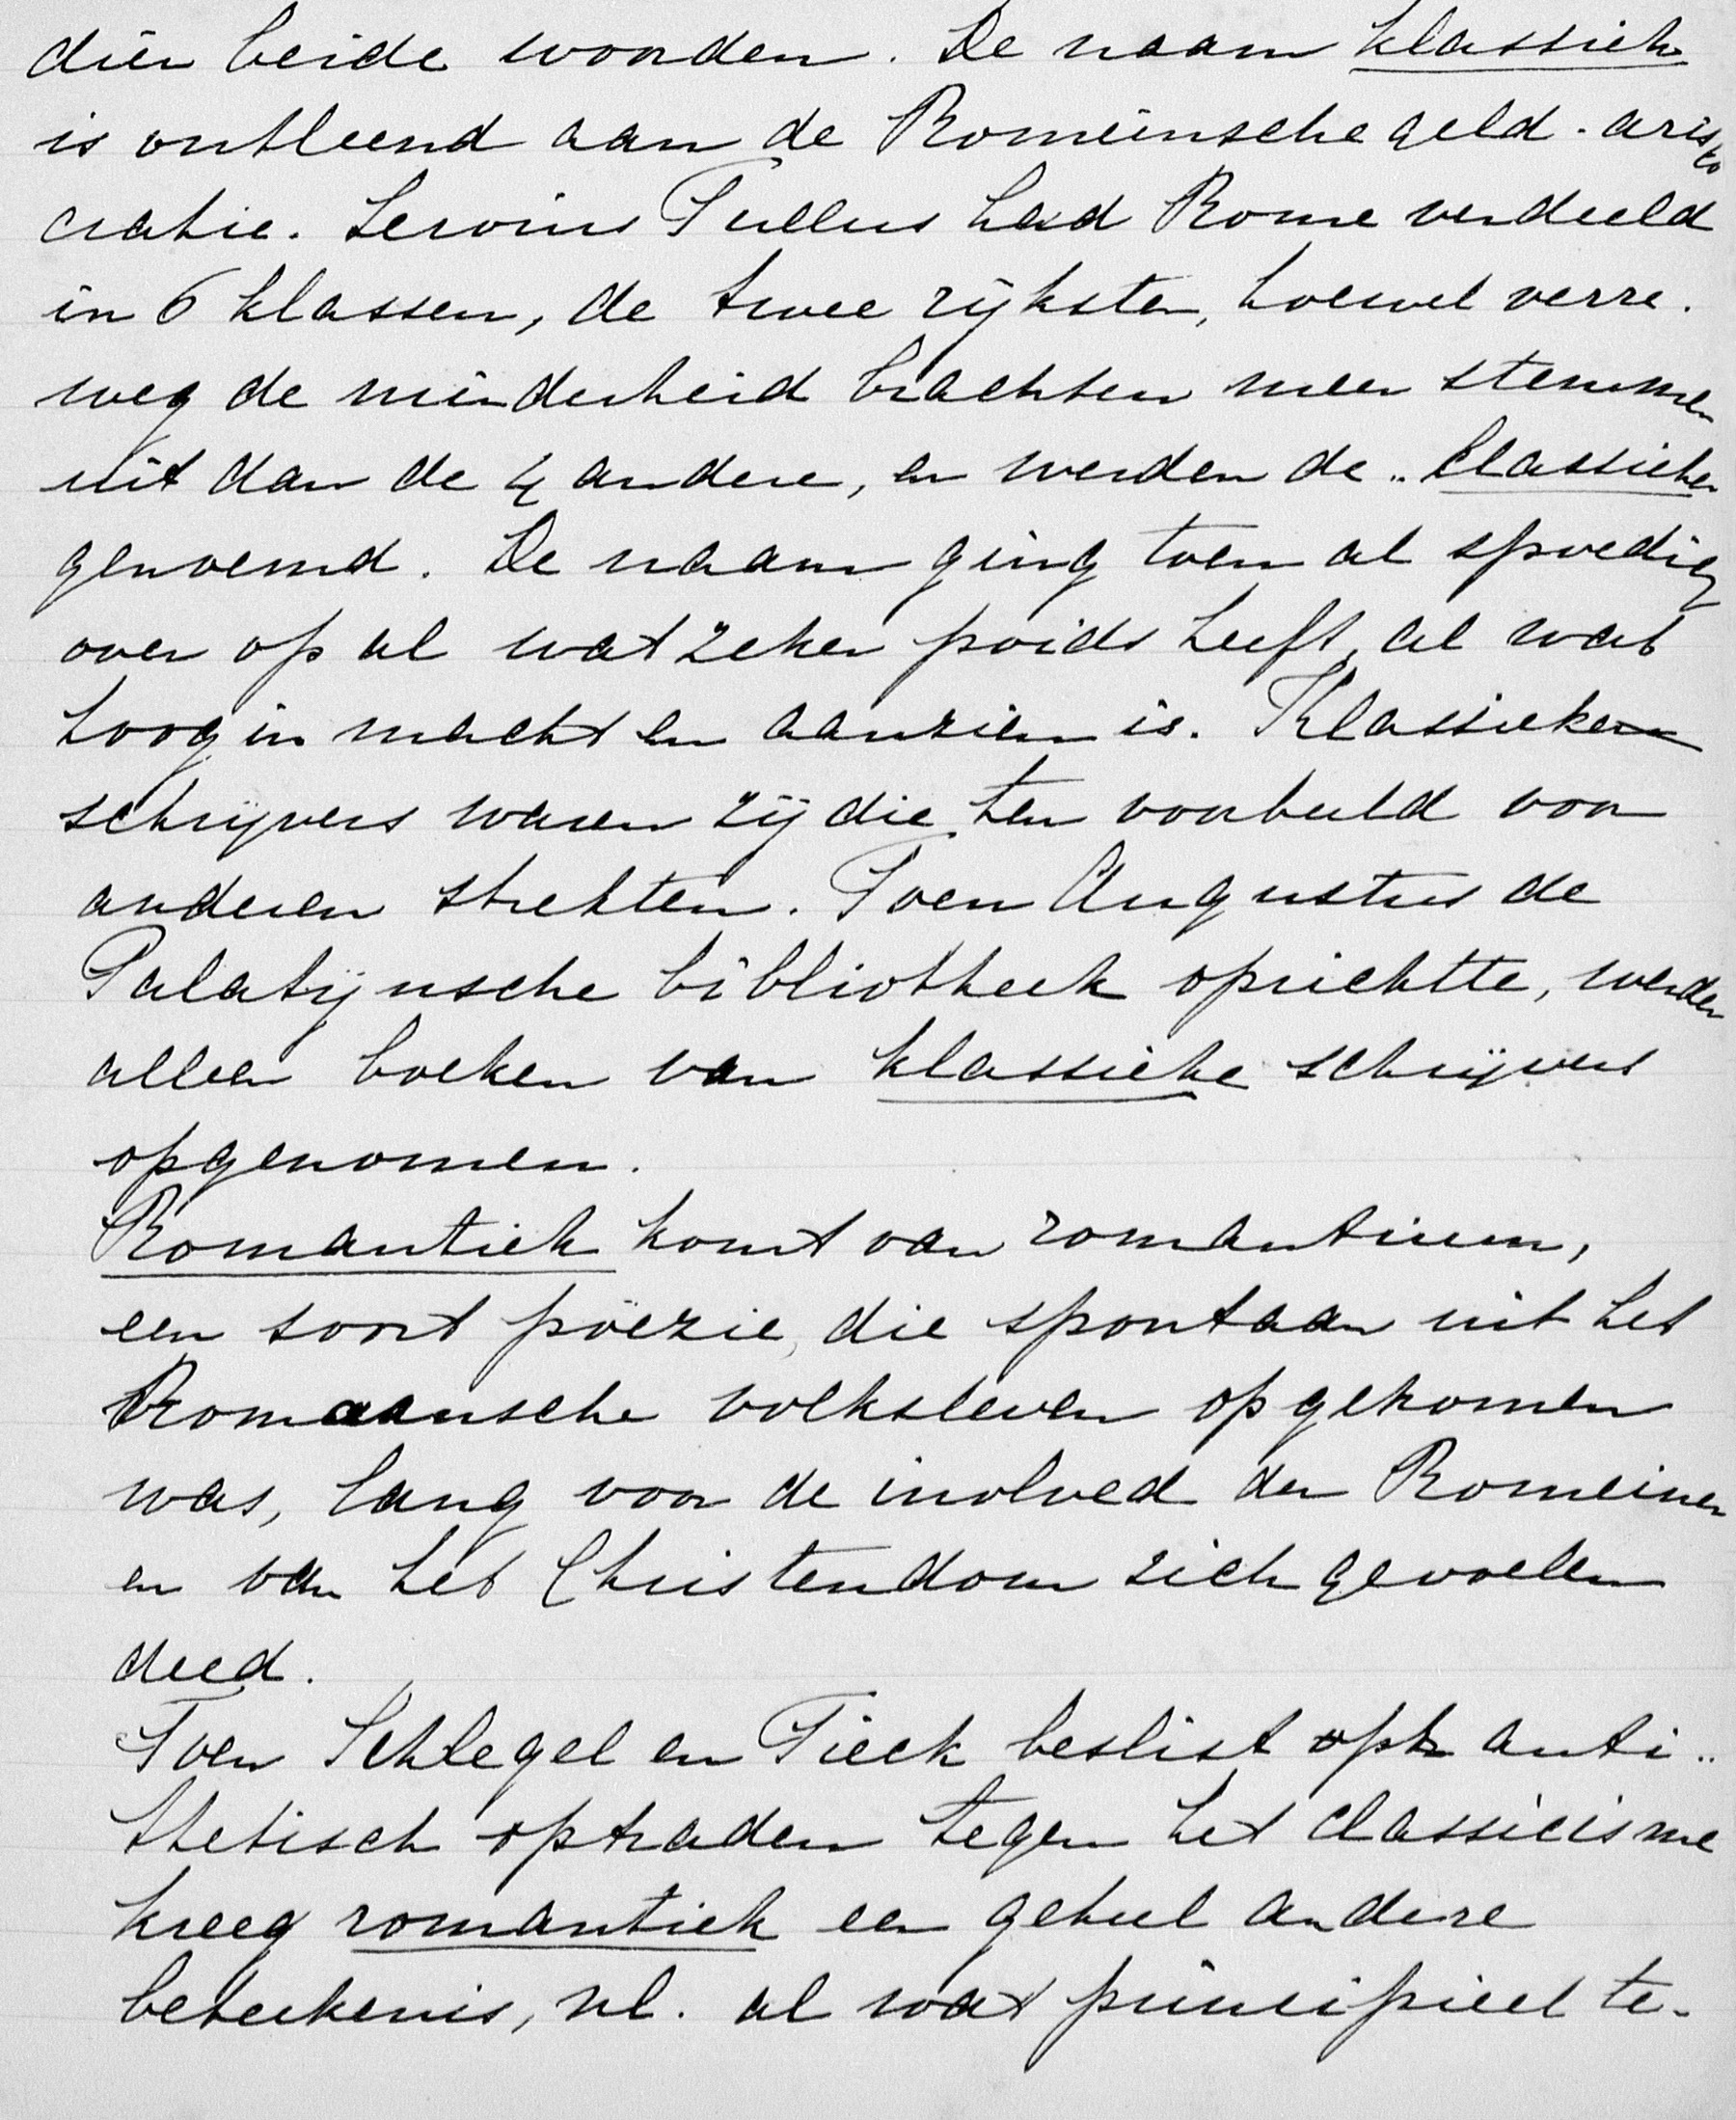 dier beide woorden. De naam klassiek
is ontleend aan de Romeinsche geld-aristo
cratie. Servius Tullus had Rome verdeeld
in 6 klassen, de twee rijksten, hoewel verre-
weg de minderheid brachten meer stemmen
uit dan de 4 andere, en werden de classieken
genoemd. De naam ging toen al spoedig
over op al wat zeker poids heeft, al wat
hoog in macht en aanzien is. Klassieke
schrijvers waren zij die ten voorbeeld voor
anderen strekten. Toen Augustus de
Palatijnsche bibliotheek oprichtte, werden
alleen boeken van klassieke schrijvers
opgenomen.
Romantiek komt van romantium,
een soort poëzie, die spontaan uit het
Romaansche volksleven opgekomen
was, lang voor de invloed der Romeinen
en van het Christendom zich gevoelen
deed.
Toen Schlegel en Tieck beslist anti-
thetisch optraden tegen het classicisme
kreeg romantiek een geheel andere
beteekenis, nl. al wat principieel te-